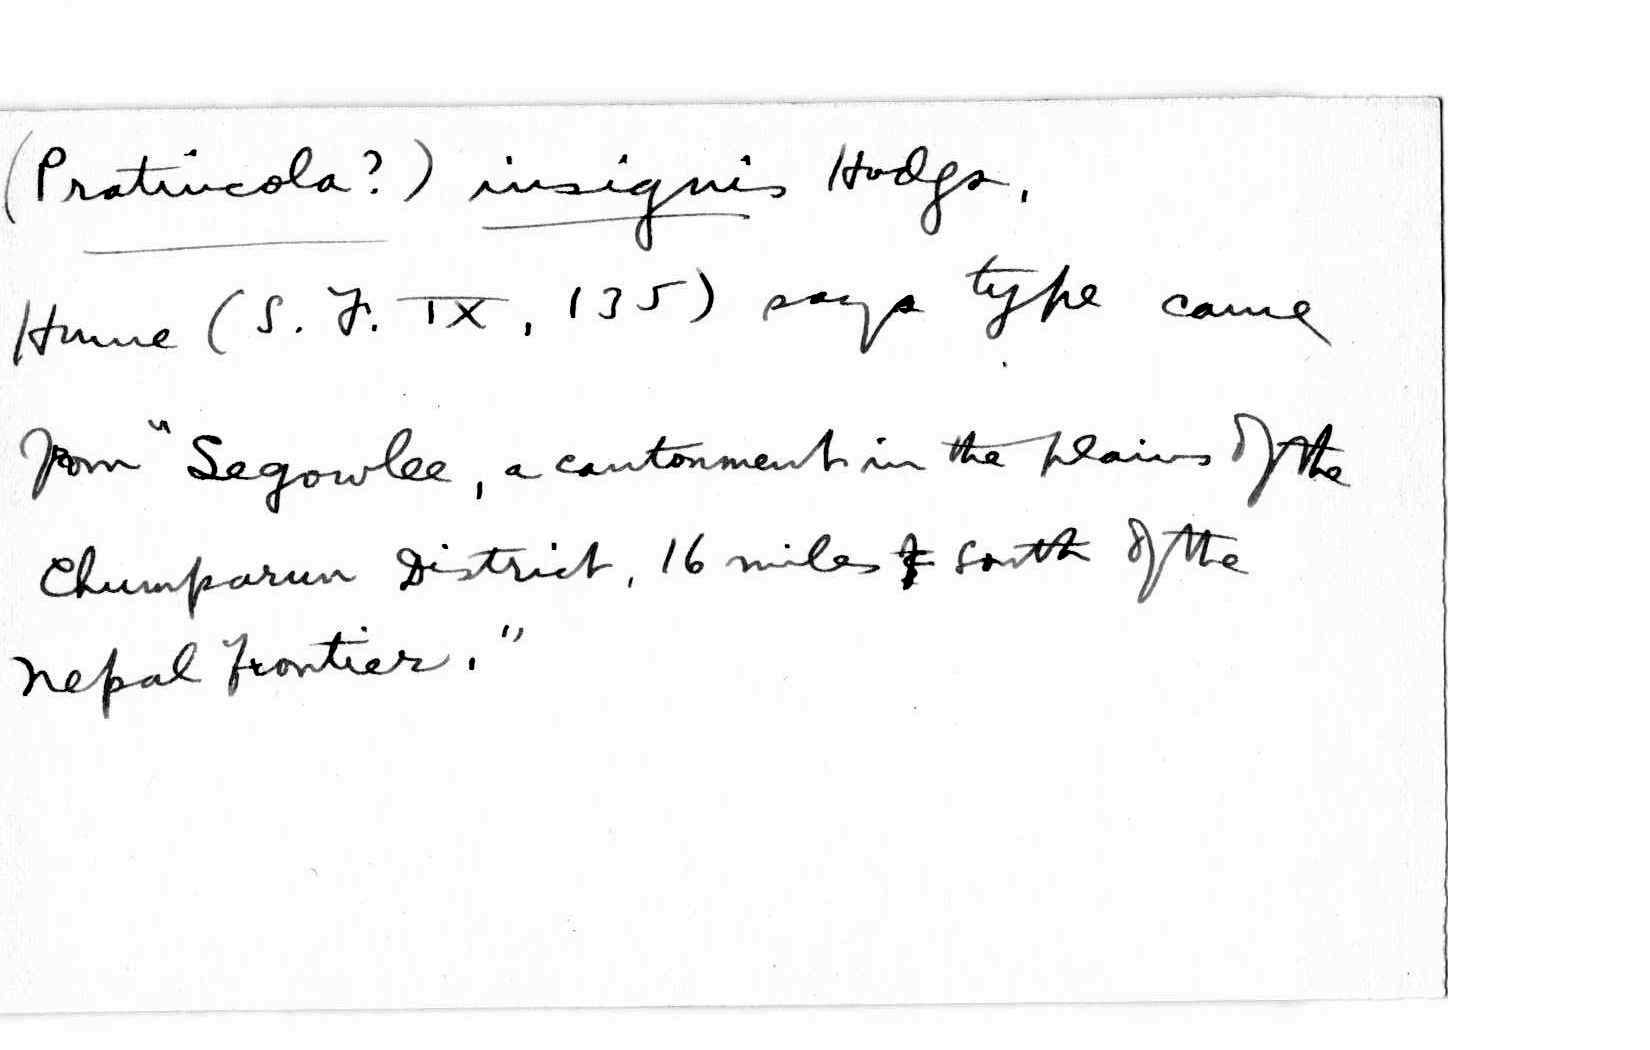 (Pratincola?) insignis Hodgs.
Hume (S. F. IX, 135) says type came
from "Segowlee, a cantonment in the plains of the
Chumparun District, 16 miles south of the
Nepal frontier."